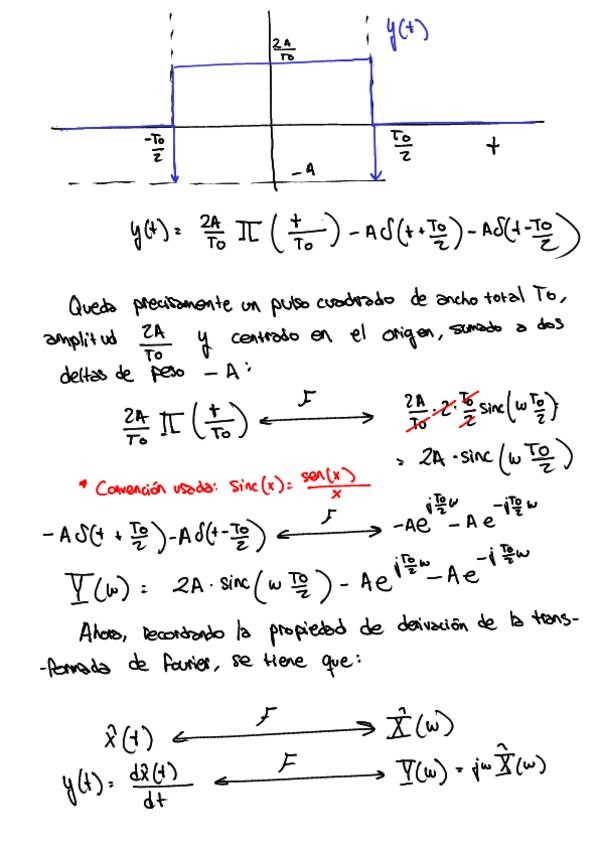 y(t)
2A/To
-To/2
To/2
t
-A
y(t) = 2A/To Π(t/To) - Aδ(t+To/2) - Aδ(t-To/2)
Queda precisamente un pulso cuadrado de ancho total To,
amplitud 2A/To y centrado en el origen, sumado a dos
deltas de peso -A:
2A/To Π(t/To) ⟷ F 2A/To · 2 · To/2 sinc(w To/2)
= 2A · sinc(w To/2)
* Convención usada: sinc(x) = sen(x)/x
-Aδ(t + To/2) - Aδ(t-To/2) ⟷ F -Ae^{j To/2 w} - Ae^{-j To/2 w}
Y(w) = 2A · sinc(w To/2) - Ae^{j To/2 w} - Ae^{-j To/2 w}
Ahora, recordando la propiedad de derivación de la trans-
-formada de Fourier, se tiene que:
x̂(t) ⟷ F X̂(w)
y(t) = dx̂(t)/dt ⟷ F Y(w) = jw X̂(w)